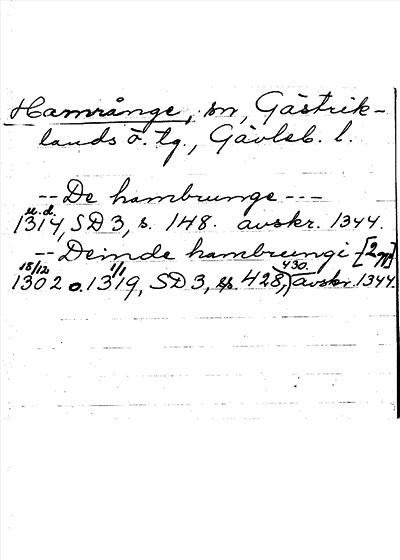 Hamrånge, sn, Gästrik-
lands ö. tg., Gävleb. l.
-- De hambrunge ---
u.d.
1314, SD 3, s. 148. avskr. 1344.
-- Deinde hambrungi [2 ggr]
18/12 1/1 430.
1302 o. 1319, SD 3, ss. 428, avskr. 1344.